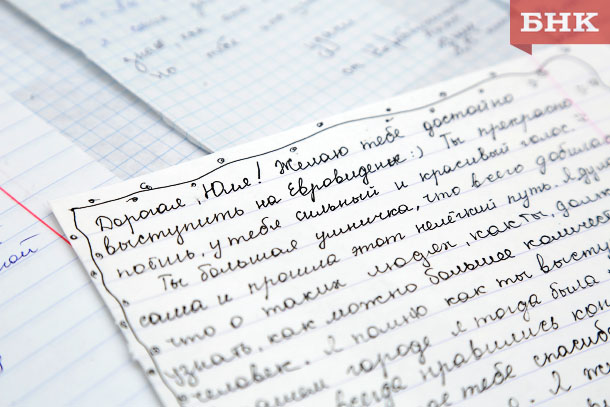 БНК
знаю, как
но тебе
Дорогая, Юля! Желаю тебе достойно
выступить на Евровиденье:) Ты прекрасно
поёшь, у тебя сильный и красивый голос.
Ты большая умничка, что всего добилась
сама и прошла этот нелёгкий путь. Я дума
что о таких людях, как ты, долж
узнать, как можно большее количес
человек. Я помню как ты высту
городе я тогда была
всегда нравились кон
тебе спасиб
Я
ой